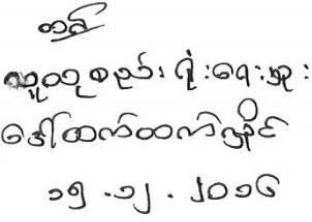 တည်
လူထုစည်းရုံးရေးမှူး
ဒေါ်ထက်ထက်လှိုင်
၁၅.၁၂.၂၀၁၆